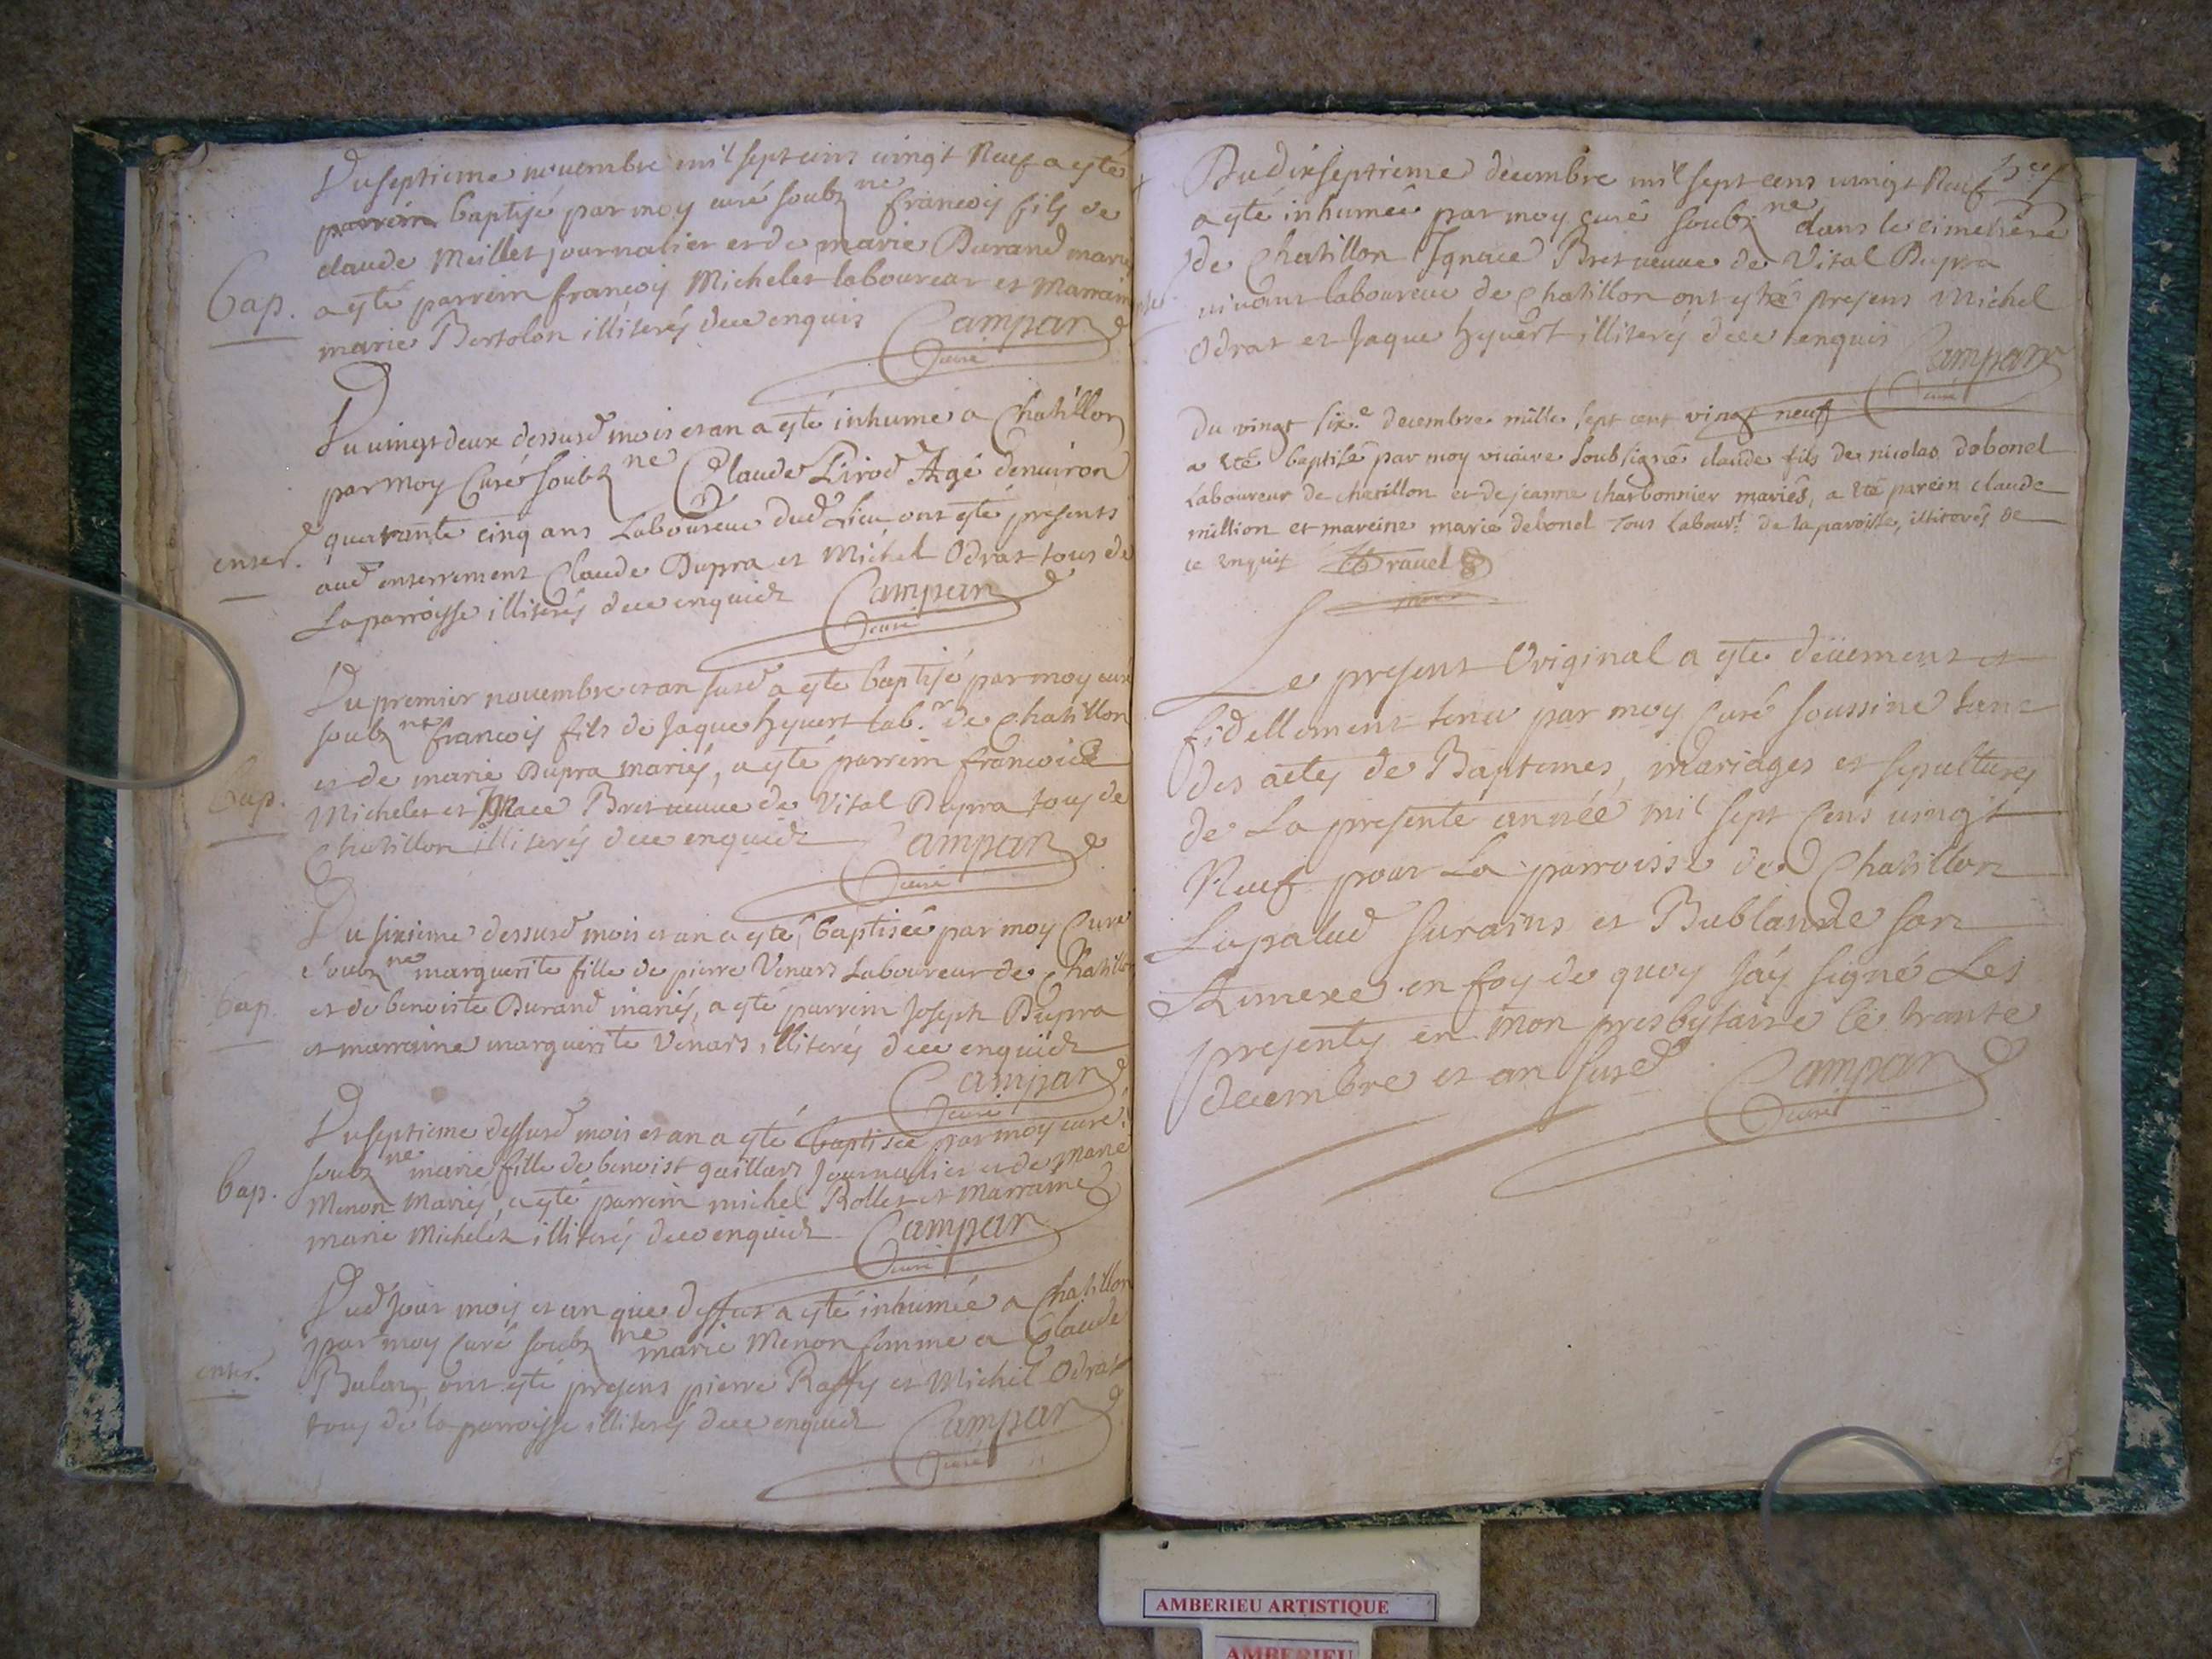 Du septieme novembre mil sept cens vingt Neuf a esté
parrein baptisé par moy curé soubz ne francois fils de
claude Meillet journalier et de marie Durand marié
a esté parrein francois Michelet laboureur et Marraine
marie Bertolon illiterés de ce enquis Campan
curé
Bap.
Du vingt deux dessusd mois et an a esté inhumé a Chatillon
par moy Curé soubz ne Claude Pirod Agé denuiron
quarante cinq ans Laboureur dud Lieu ont esté presents
aud enterrement Claude Dupra et Michel Odrat tous de
La parroisse illiterés de ce enquidz Campan
curé
enter.
Du premier novembre et an susd a esté baptisé par moy curé
soubz ne francois fils de Jaque hyvert lab.r de Chatillon
et de marie Dupra mariés, a esté parrein francois
Michelet et Ignace Bret veuve de Vital Dupra tous de
Chatillon illiterés de ce enquidz Campan
curé
Bap.
Du sixieme dessusd mois et an a esté baptisée par moy Curé
soubz ne marguerite fille de pierre Venard Laboureur de Chatillon
et de benoiste Durand mariés, a esté parrein Joseph Dupra
et marraine marguerite Venard illiterés de ce enquidz
Campan
curé
bap.
Du septieme dessusd mois et an a esté baptisée par moy curé
soubz ne marie fille de benoist gaillard Journalier et de marie
Menon Mariés, a esté parrein michel Rollet et Marraine
marie Michelet illiterés de ce enquidz Campan
curé
bap.
Dud Jour mois et an que dessus a esté inhumée a Chatillon
par moy Curé soubz ne marie Menon femme a Claude
ont esté presens pierre Raffy et Michel Odrat
tous de la parroisse illiterés de ce enquidz Campan
curé
enter.
Du dixseptieme decembre mil sept cens vingt Neuf
a esté inhumée par moy curé soubz ne dans le cimetiere
de Chatillon Ignace Bret veuve de Vital Dupra
vivant laboureur de Chatillon ont esté presens Michel
Odrat et Jaque hyvert illiterés de ce enquis
Campan
curé
Du vingt six.e decembre mille sept cent vingt neuf
a eté baptisé par moy vicaire soubsigné claude fils de nicolas debonel
Laboureur de chatillon et de jeanne charbonnier mariés, a eté parein claude
million et mareine marie debonel tous Labour.s de la paroisse, illiterés de
ce enquis Travel
Le present Original a esté deüement et
fidellement tenu par moy Curé soussiné tant
des actes de Baptemes, mariages et sepultures
de La presente année mil sept Cens vingt
Neuf pour La parroisse de Chatillon
Lapalud surains et Bublanne son
Annexe en foy de quoy J'ay signé Les
presentes en mon presbytaire le trante
decembre et an susd Campan
curé
AMBERIEU ARTISTIQUE
AMBERIEU